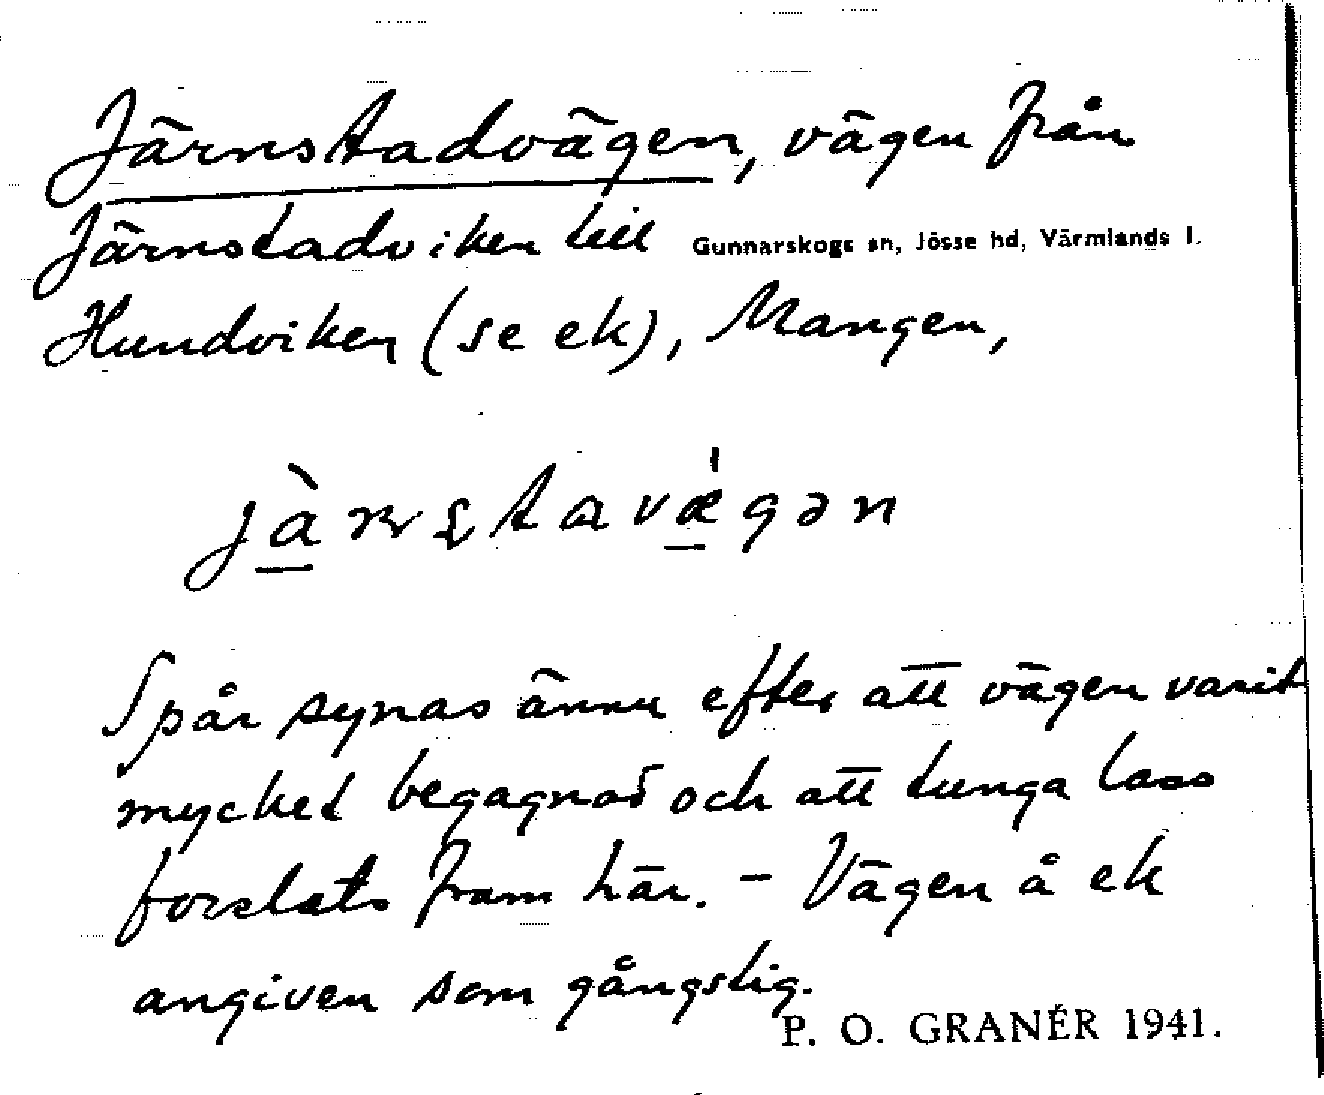 Järnstadvägen, vägen från
Järnstadviken till Gunnarskogs sn, Jösse hd, Värmlands l.
Hundviken (se ek), Mangen,
Spår synas ännu efter att vägen varit
mycket begagnad och att tunga lass
forslats fram här. – Vägen å ek
angiven som gångstig.
P. O. GRANÉR 1941.